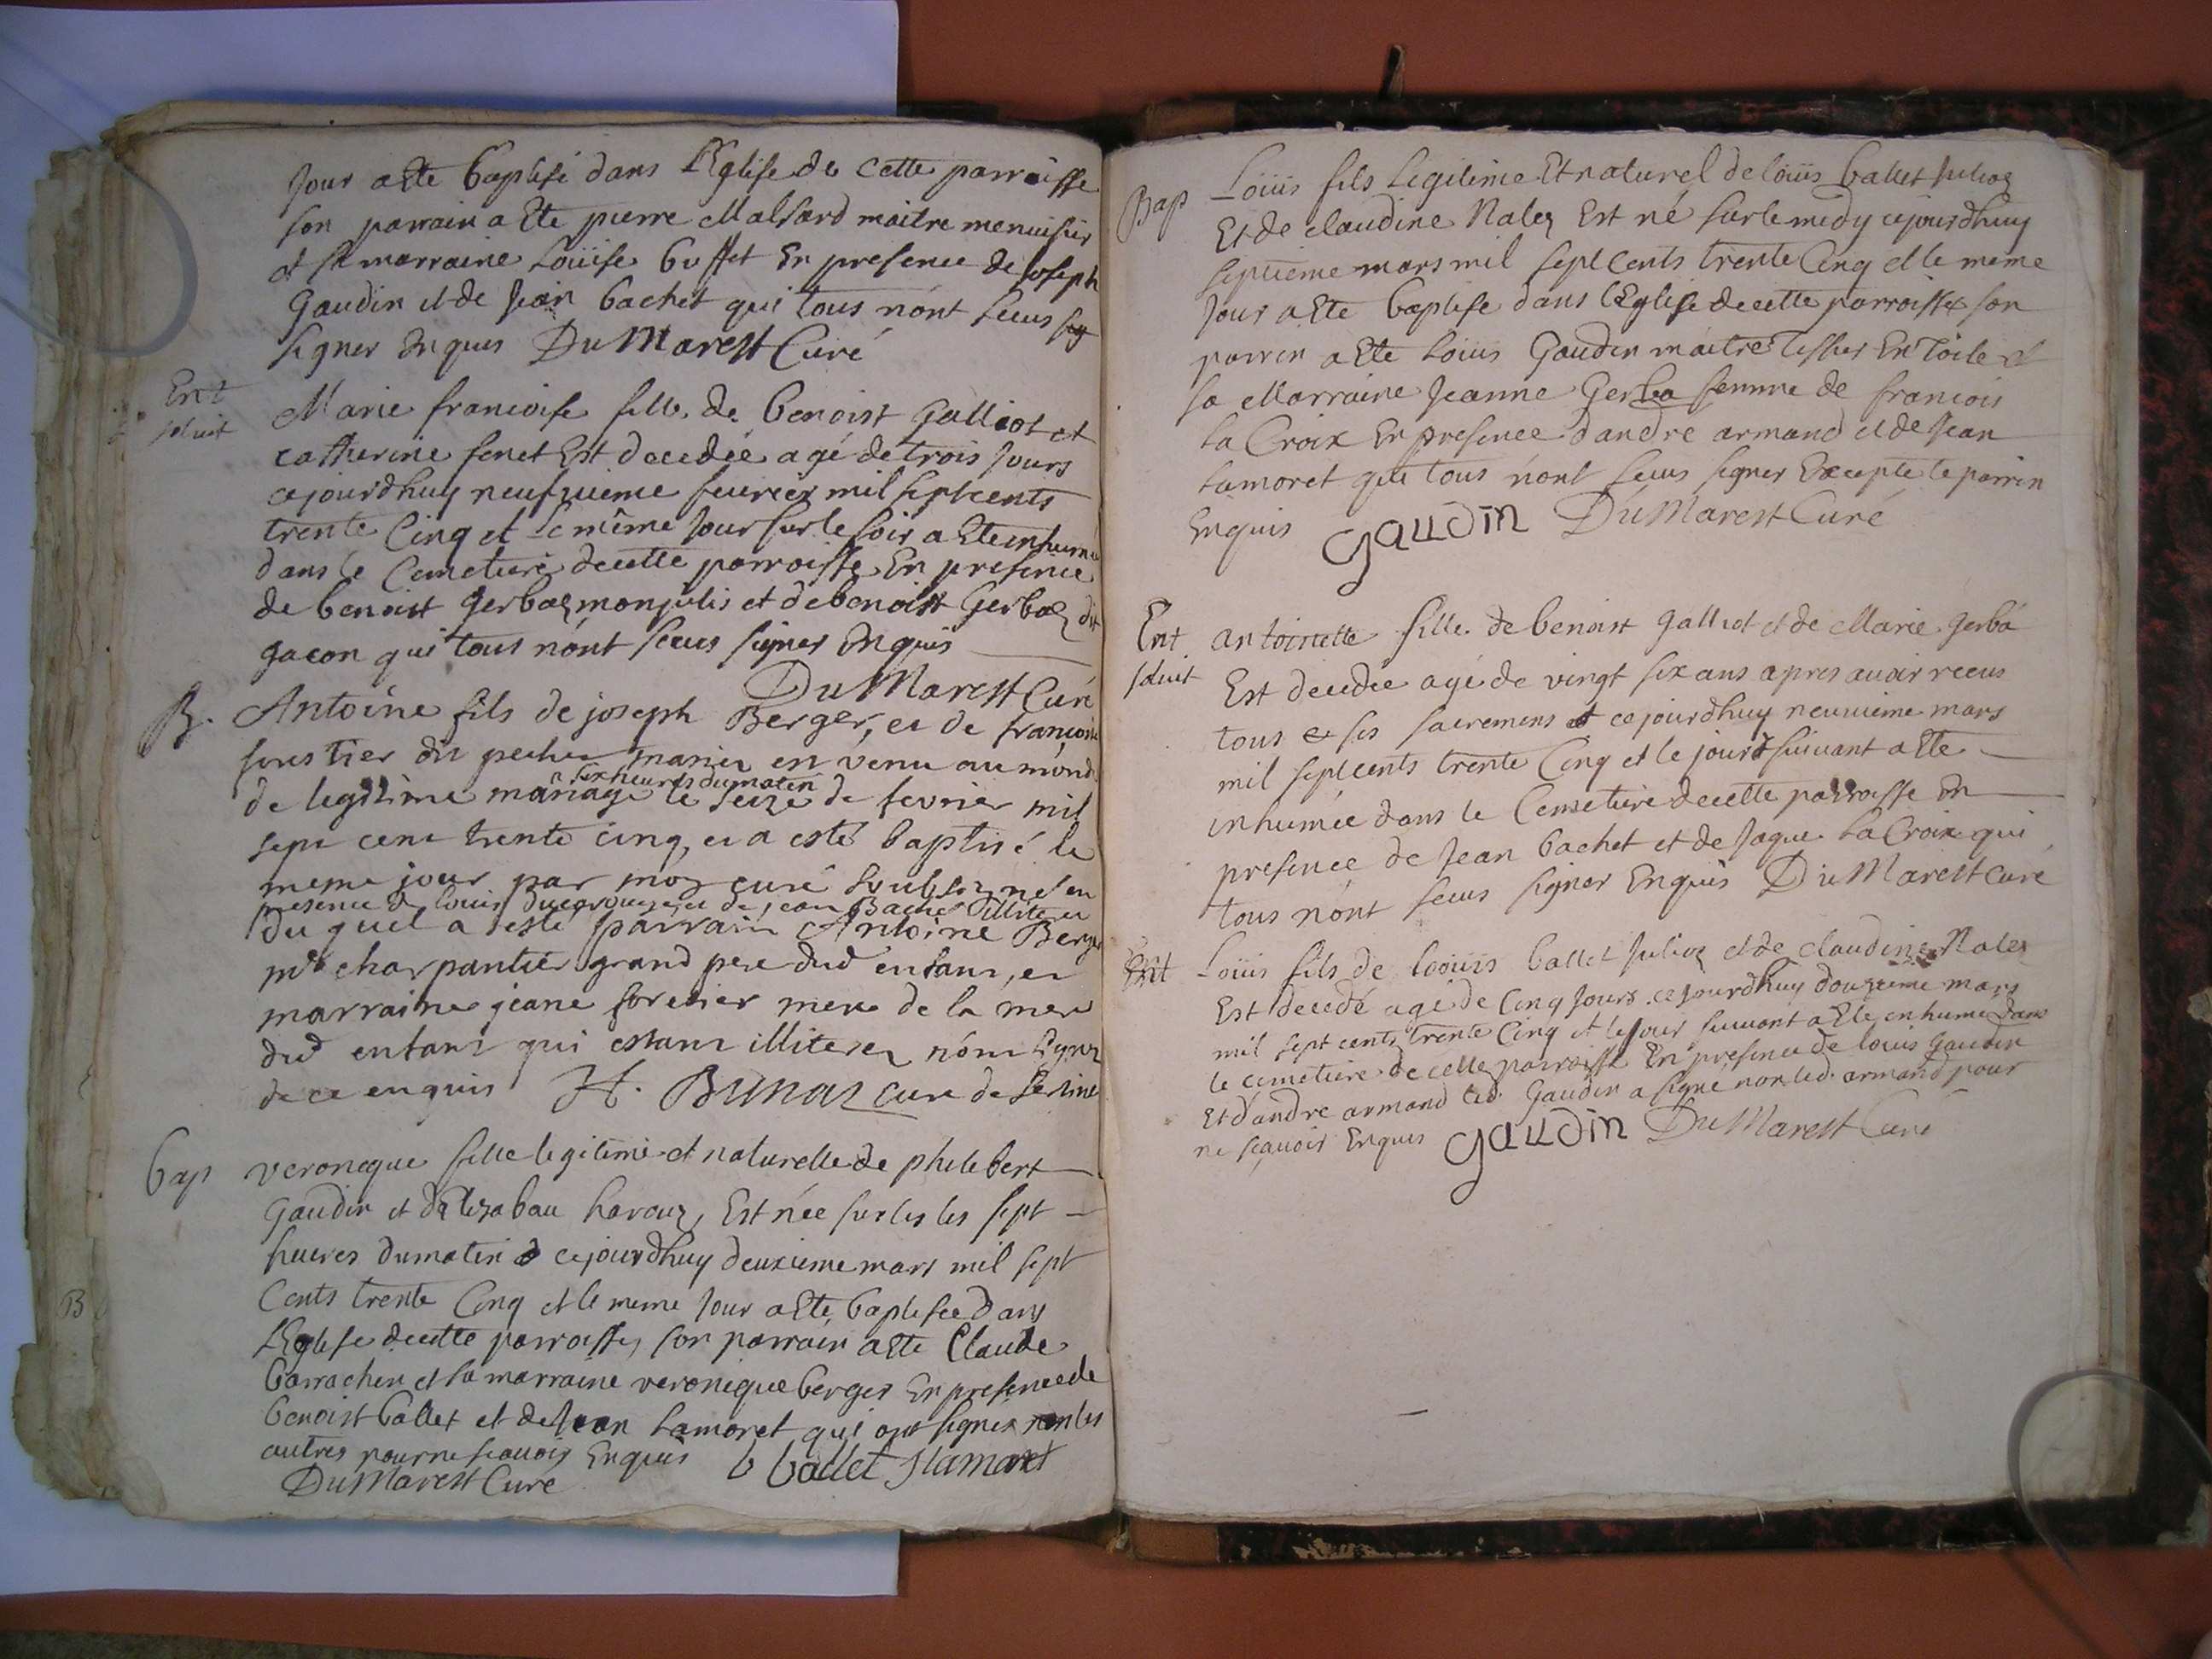 Jour a Ete baptisé dans L'Eglise de cette parroisse
son parrain a Ete pierre Malfard maitre menuisier
et sa marraine Loüise buffet En presence de joseph
Gaudin et de Jean bachet qui tous n'ont sceus sig
signer Enquis DuMarest Curé
Ent
soluit
Marie francoise fille de benoist galliot et
catherine fenet Est decedée agé de trois jours
cejourdhuy neufvieme feurier mil septcents
trente Cinq et le même Jour sur le soir a Ete inhumé
dans le Cemetiere decette parroisse En presence
de benoist Gerbaz monjulis et de benoist Gerbaz dit
gacon qui tous n'ont sceus signer Enquis
DuMarest Curé
B.
Antoine fils de joseph Berger, et de francoise
forestier en venu au monde
six heures du maten
de legitime mariage le seize de fevrier mil
sept cent trente cinq, et a esté baptisé le
meme jour par moy curé soubsigné en
presence de louis et de jean Bachet illiterez
du quel a esté parrain Antoine Berger
mre charpantier grand pere dud enfant, et
marraine jeane foretier mere de la mere
dud enfant qui estant illiterez n'ont signé
de ce enquis H. Bunaz cure de
bap
veroneque fille legitime et naturelle de philebert
Gaudin et d'Elizabau havouz, Est née sur les les sept
heures dumatin cejourdhuy deuxieme mars mil sept
Cents trente Cinq et le meme Jour a Ete baptisée dans
L'Eglise decette parroisse, son parrain a Ete Claude
barrachin et sa marraine veronique berger En presence de
benoist ballet et de Jean Lamoret qui ont signé non les
autres pour ne scauoir Enquis b ballet J lamoret
DuMarest Curé
B
Bap
Loüis fils Legitime Et naturel de loüis ballet Julioz
Et de claudine Nalez Est né sur le midy cejourdhuy
septieme mars mil sept Cents trente Cinq et le meme
Jour a Ete baptise dans l'Eglise decette parroisse son
parrin a Ete Loüis Gaudin maitre tissier En toile et
sa Marraine Jeanne Gerba femme de francois
La Croix En presence d'andre armand et de Jean
Lamoret qui tous n'ont sceus signer Excepte le parrin
Enquis Gaudin DuMarest Curé
Ent
soluit
antoinette fille de benoist galliot et de Marie gerba
Est decedée agé de vingt six ans apres auoir receus
tous ses sacremens cejourdhuy neuuieme mars
mil septcents trente Cinq et le jour suiuant a Ete
inhumée dans le Cemetiere decette parroisse En
presence de Jean bachet et de Jaque La Croix qui
tous n'ont sceus signer Enquis DuMarest curé
Ent
Loüis fils de loüis ballet Julioz et de claudine Nalez
Est decedé agé de Cinq Jours cejourdhuy douzieme mars
mil sept cents trente Cinq et lejour suiuant a Ete inhumé dans
le cemetiere de cette parroisse En presence de louis Gaudin
Et d'andre armand led. Gaudin a signé non led. armand pour
ne scauoir Enquis Gaudin DuMarest Curé